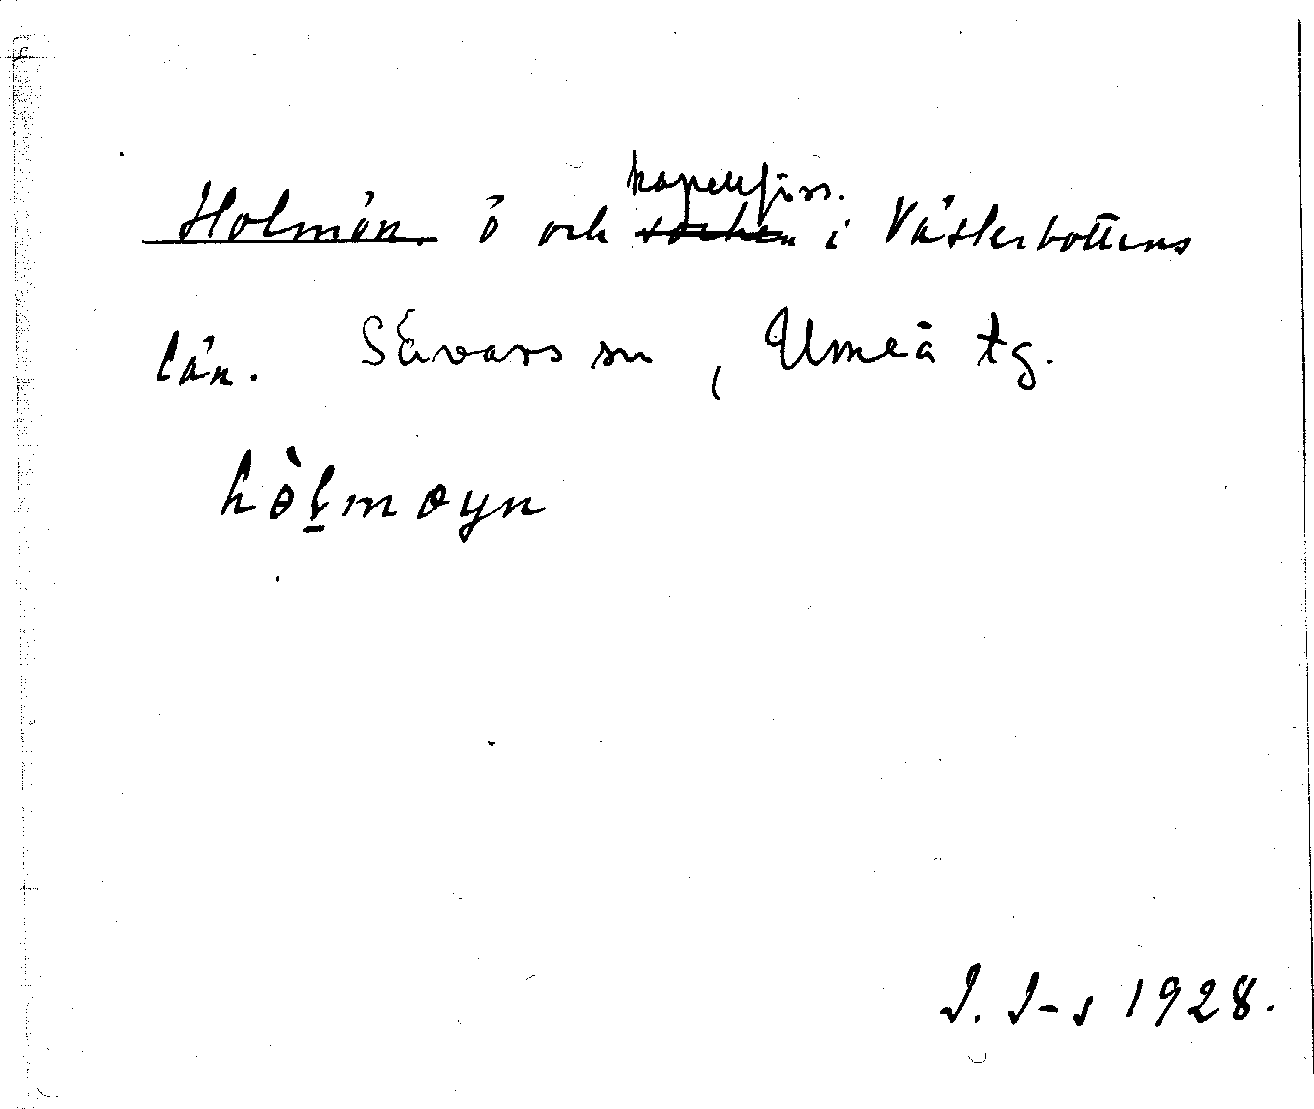 kapellförs.
Holmön. ö och socken i Västerbottens
län. Sävars sn, Umeå tg.
hòl̠møyn
J. J-s 1928.